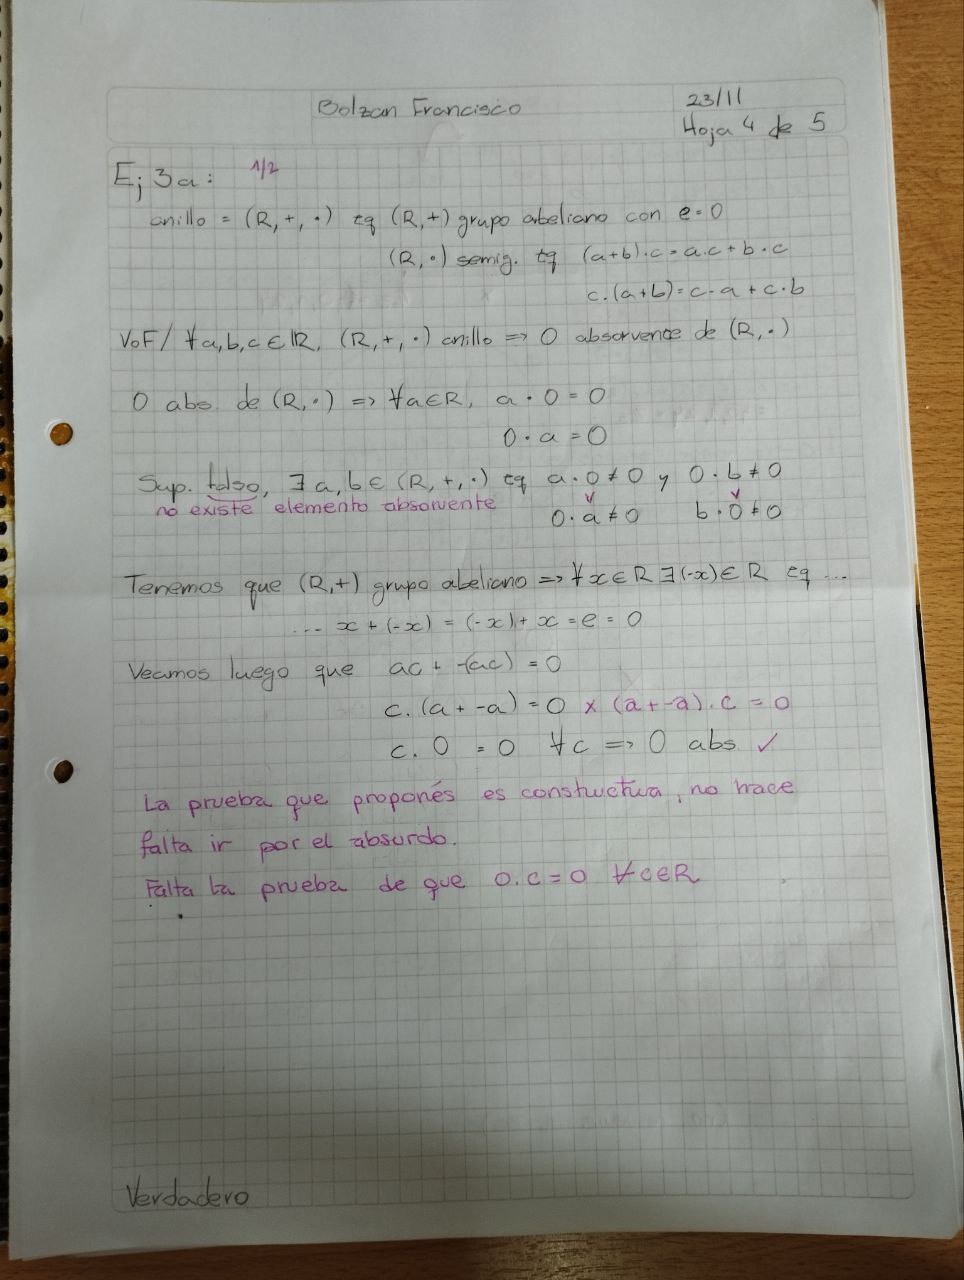 Bolzan Francisco
23/11
Hoja 4 de 5
Ej 3a: 1/2
anillo = (R, +, ·) tq (R, +) grupo abeliano con e=0
(R, ·) semig. tq (a+b)·c = a.c + b·c
c.(a+b) = c·a + c·b
VoF/ ∀a,b,c ∈ R, (R, +, ·) anillo => 0 absorvente de (R, ·)
0 abs. de (R, ·) => ∀a∈R, a · 0 = 0
0 · a = 0
Sup. falso, ∃ a,b ∈ (R, +, ·) tq a·0 ≠ 0 y 0·b ≠ 0
no existe elemento absorvente
v v
0·a ≠ 0 b·0 ≠ 0
Tenemos que (R,+) grupo abeliano => ∀x∈R ∃(-x)∈R tq ...
... x + (-x) = (-x) + x = e = 0
Veamos luego que ac + -(ac) = 0
c.(a + -a) = 0 x (a + -a). c = 0
c. 0 = 0 ∀c => 0 abs. ✓
La prueba que proponés es constuctiva, no hace
falta ir por el absurdo.
Falta la prueba de que 0.c = 0 ∀c∈R
Verdadero